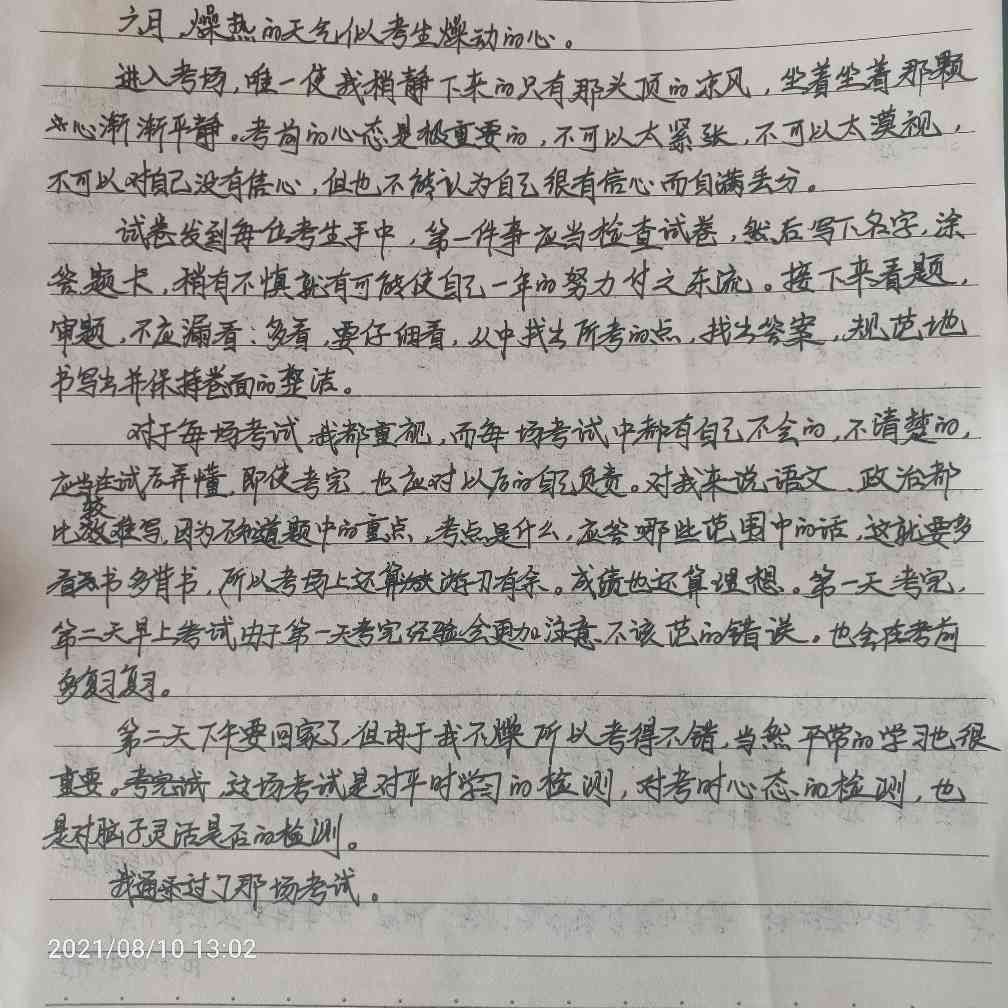 六月,燥热的天气似考生燥动的心。
进入考场,唯一使我稍静下来的只有那头顶的凉风,坐着坐着那颗
心渐渐平静。考前的心态是极重要的,不可以太紧张,不可以太漠视,
不可以对自己没有信心,但也不能认为自己很有信心而自满丢分。
试卷发到每位考生手中,第一件事应当检查试卷,然后写下名字,涂
答题卡,稍有不慎就有可能使自己一年的努力付之东流。接下来看题,
审题,不应漏看;多看,要仔细看,从中找出所考的点,找出答案,规范地
书写出并保持卷面的整洁。
对于每场考试,我都重视,而每场考试中都有自己不会的,不清楚的,
应当在试后弄懂,即使考完,也应对以后的自己负责。对我来说,语文、政治都
比较难写,因为不知道题中的重点,考点是什么,应答哪些范围中的话,这就要多
看书多背书,所以考场上还算游刃有余。成绩也还算理想。第一天考完,
第二天早上考试由于第一天考完经验会更加注意、不该范的错误。也会在考前
多复习复习。
第二天下午要回家了,但由于我不燥所以考得不错,当然平常的学习也很
重要。考完试,这场考试是对平时学习的检测,对考时心态的检测,也
是对脑子灵活是否的检测。
我通过了那场考试。
2021/08/10 13:02